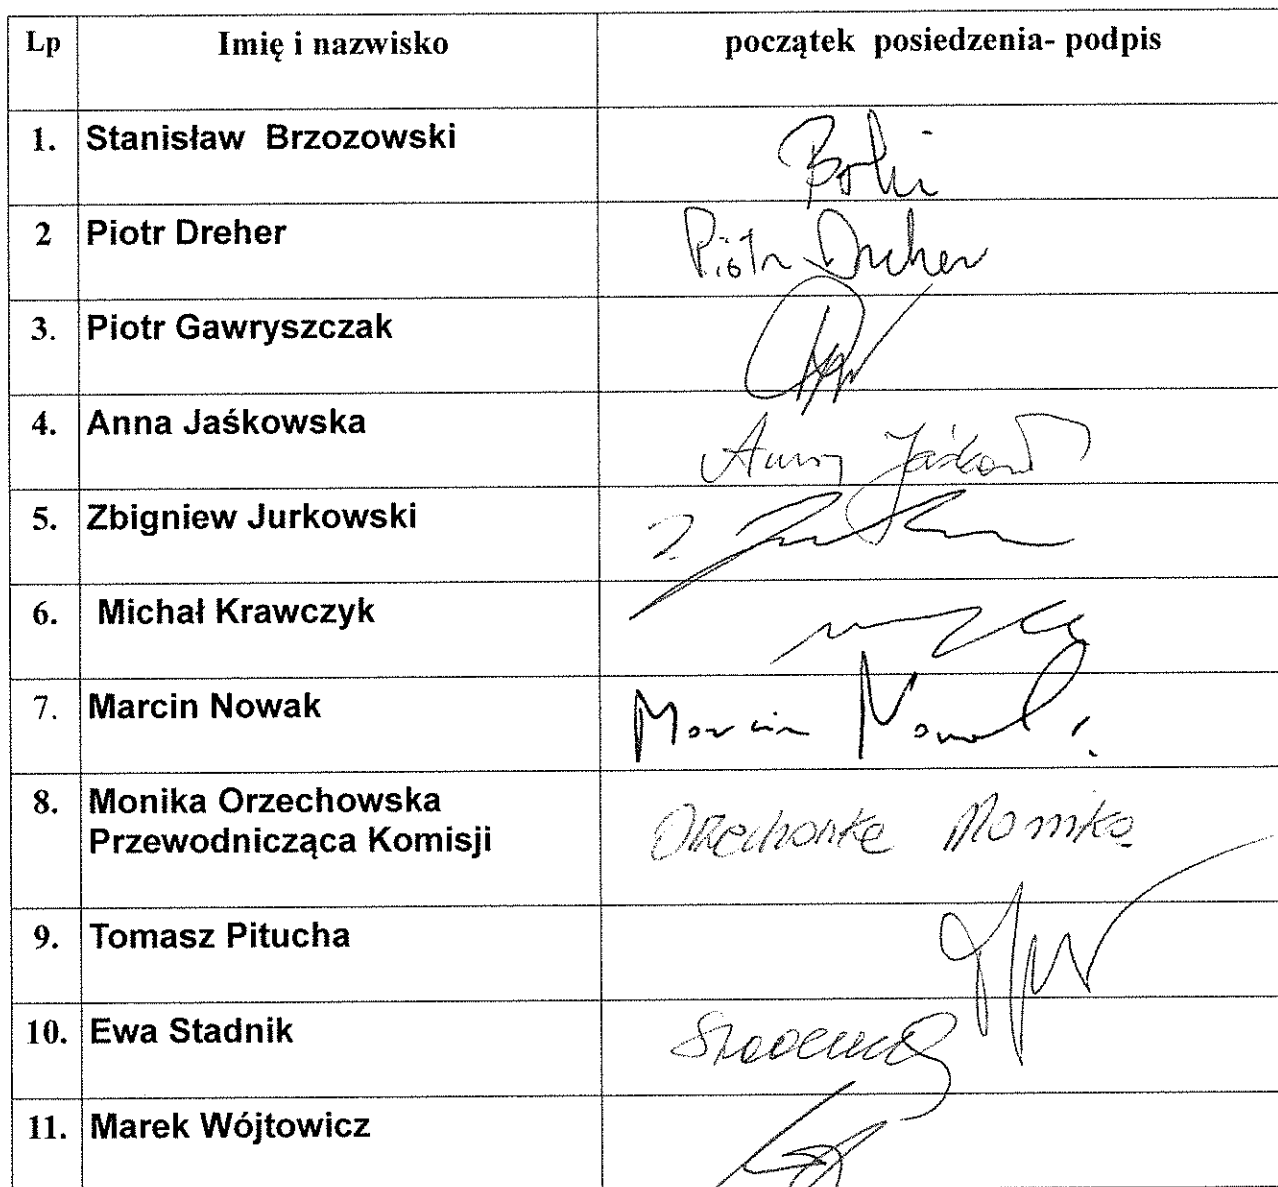 Lp Imię i nazwisko początek posiedzenia- podpis
1. Stanisław Brzozowski
2 Piotr Dreher Piotr Dreher
3. Piotr Gawryszczak
4. Anna Jaśkowska
5. Zbigniew Jurkowski
6. Michał Krawczyk
7. Marcin Nowak Marcin Nowak
8. Monika Orzechowska
Przewodnicząca Komisji
9. Tomasz Pitucha
10. Ewa Stadnik
11. Marek Wójtowicz